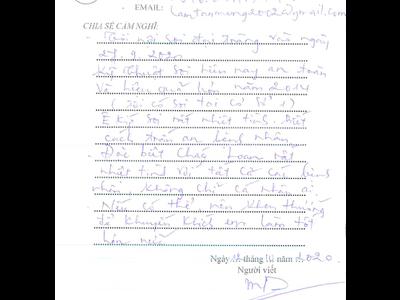 EMAIL: tamtanmeng2022@gmail.com
CHIA SẺ CẢM NGHĨ:
- Tôi nội soi đại tràng vào ngày
27.9.2020
Kỹ thuật soi hiện nay an toàn
và hiệu quả hơn năm 2014
(Tôi có soi tại cơ sở 1)
Ê kíp soi rất nhiệt tình. biết
cách trấn an bệnh nhân.
- Đặc biệt Cháu Loan rất
nhiệt tình với tất cả các bệnh
nhân, không chỉ cá nhân ai.
- Nếu có thể nên khen thưởng
để khuyến khích em làm tốt
hơn nữa
Ngày tháng 10 năm 2020.
Người viết